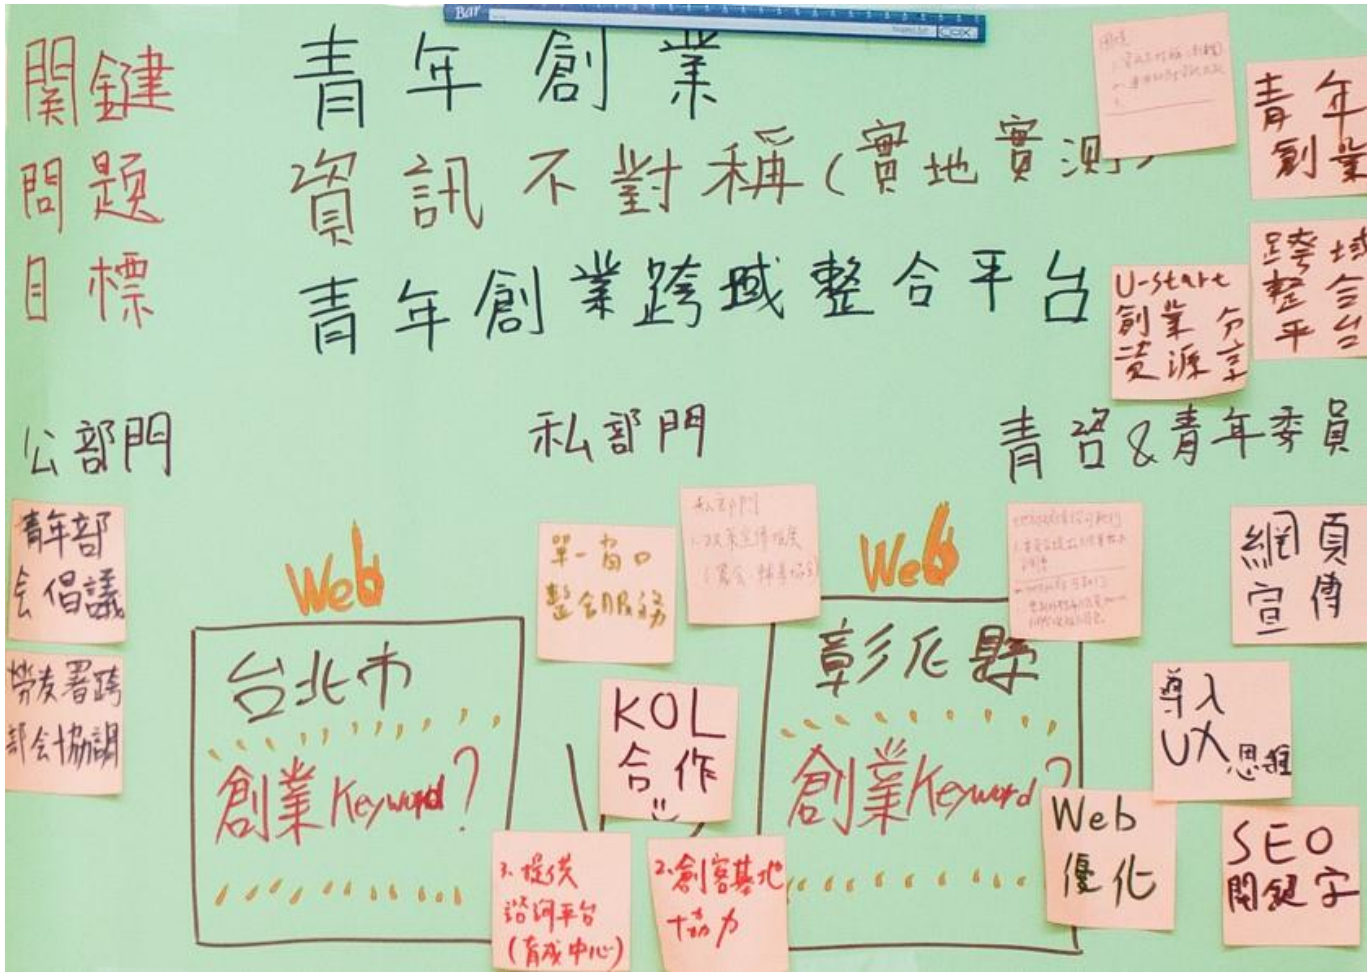 Bar
COX
關鍵 青年創業
問題 資訊不對稱(實地實測)
目標 青年創業跨域整合平台
青年
創業
跨域
整合
平台
U-start
創業 分
資源 享
公部門
私部門
青咨&青年委員
青年部
会倡議
勞发署跨
部会協調
Web
台北市
創業Keyword?
單一窗口
整合服務
私部門
KOL
合作
3.提供
諮詢平台
(育成中心)
2.創客基地
協力
Web
彰化縣
創業Keyword?
網頁
宣傳
導入
UX思維
Web
優化
SEO
關鍵字